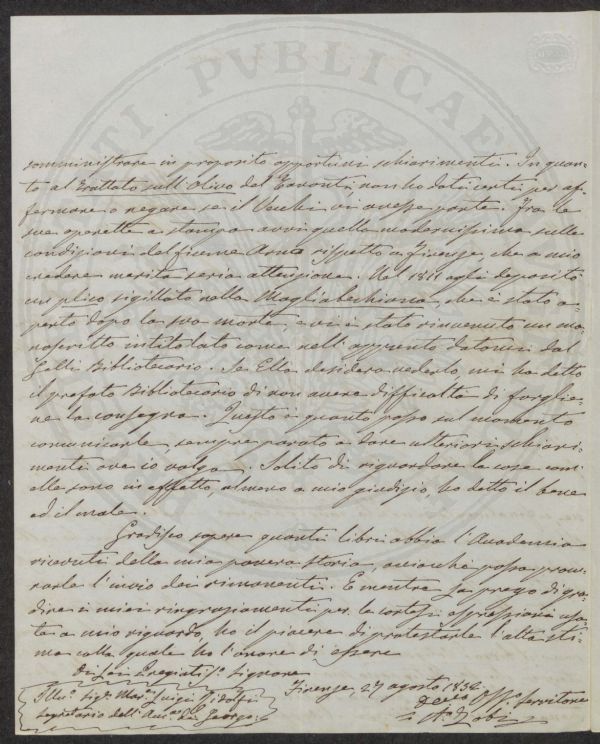 somministrare in proposito opportuni schiarimenti. In quan-
to al Trattato sull'Olivo del Tavanti non ho dati certi per af-
fermare o negare se il Vecchi vi avesse parte. Fra le
sue operette a stampa avvi quella modernissima sulle
condizioni del fiume Arno rispetto a Firenze, che a mio
credere merita seria attenzione. Nel 1811 egli depositò
un plico sigillato nella Magliabechiana, che è stato a-
perto dopo la sua morte, e vi è stato rinvenuto un ma-
noscritto intitolato come nell'appunto datomi dal
Galli Bibliotecario. Se Ella desidera vederlo mi ha detto
il prefato Bibliotecario di non avere difficoltà di farglie-
ne la consegna. Questo è quanto posso sul momento
comunicarle, sempre parato a dare ulteriori schiari-
menti ove io valga. Solito di riguardare le cose com'
elle sono in effetto, almeno a mio giudizio, ho detto il bene
ed il male.
Gradirò sapere quanti libri abbia l'Accademia
ricevuti della mia povera storia, acciocchè possa procu-
rarle l'invio dei rimanenti. E mentre La prego di gra-
dire i miei ringraziamenti per le cortesi espressioni usa-
te a mio riguardo, ho il piacere di protestarle l'alta sti-
ma colla quale ho l'onore di essere
Di Lei Pregiatis.º Signore
Firenze, 27 agosto 1852
Ill.º Sig.r Mar. Luigi Ridolfi
Segretario dell'Acc. dei Georgo:
Dev.º Obb.º Servitore
A. Zobi